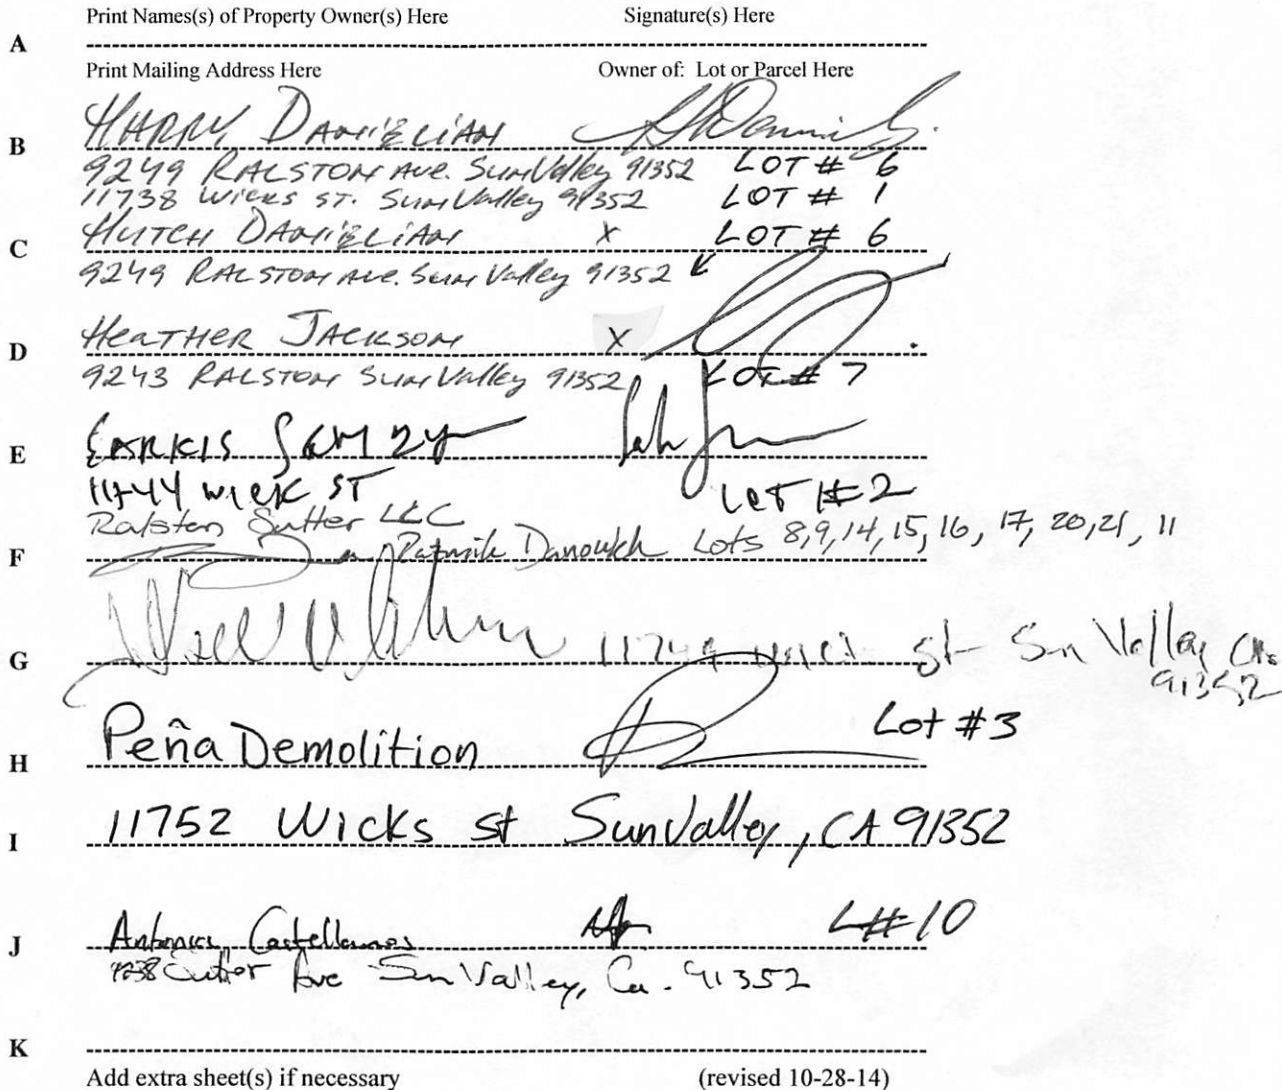 Print Names(s) of Property Owner(s) Here Signature(s) Here
A
Print Mailing Address Here Owner of: Lot or Parcel Here
B HARRY DANIELIAN
9249 RALSTON AVE. Sun Valley 91352 LOT # 6
11738 WICKS ST. Sun Valley 91352 LOT # 1
C HUTCH DANIELIAN X LOT # 6
9249 RALSTON AVE. Sun Valley 91352
D HEATHER JACKSON X
9243 RALSTON Sun Valley 91352 LOT # 7
E SARKIS
11744 WICK ST LOT #2
Ralston Sutter LLC
F Danowich Lots 8, 9, 14, 15, 16, 17, 20, 21, 11
G 11749 st Sun Valley CA
91352
Lot #3
H Peña Demolition
I 11752 Wicks st Sun Valley, CA 91352
J Antonia Castellanos L#10
9238 Sutter Ave Sun Valley, Ca. 91352
K
Add extra sheet(s) if necessary (revised 10-28-14)